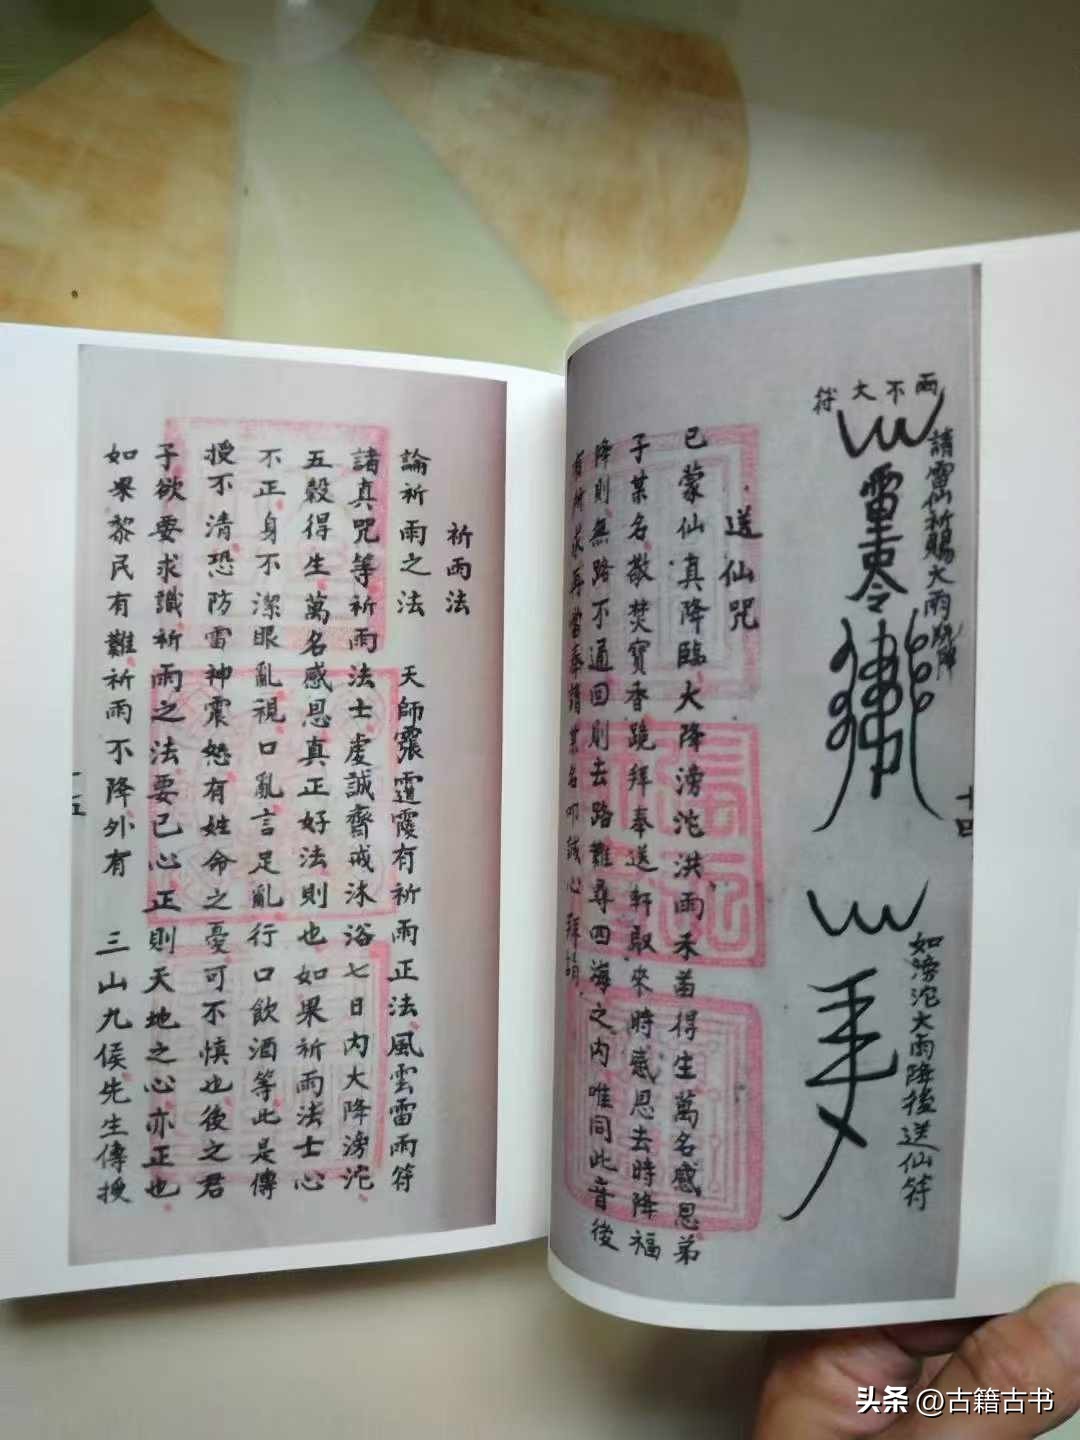 雨不大符
請雷仙祈賜大雨
如滂沱大雨降後送仙符
十四
送仙咒
已蒙仙真降臨大降滂沱洪雨禾苗得生萬名感恩弟
子某名敬焚寶香跪拜奉送軒馭來時感恩去時降福
降則無路不通回則去路難尋四海之內唯同此音後
有所求再當奉請某名叩誠心拜請
祈雨法
論祈雨之法 天師霐霞有祈雨正法風雲雷雨符
諸真咒等祈雨法士虔誠齋戒沐浴七日內大降滂沱
五穀得生萬名感恩真正好法則也如果祈雨法士心
不正身不潔眼亂視口亂言足亂行口飲酒等此是傳
授不清恐防雷神震怒有姓命之憂可不慎也後之君
子欲要求識祈雨之法要己心正則天地之心亦正也
如果黎民有難祈雨不降外有 三山九侯先生傳授
十五
头条 @古籍古书